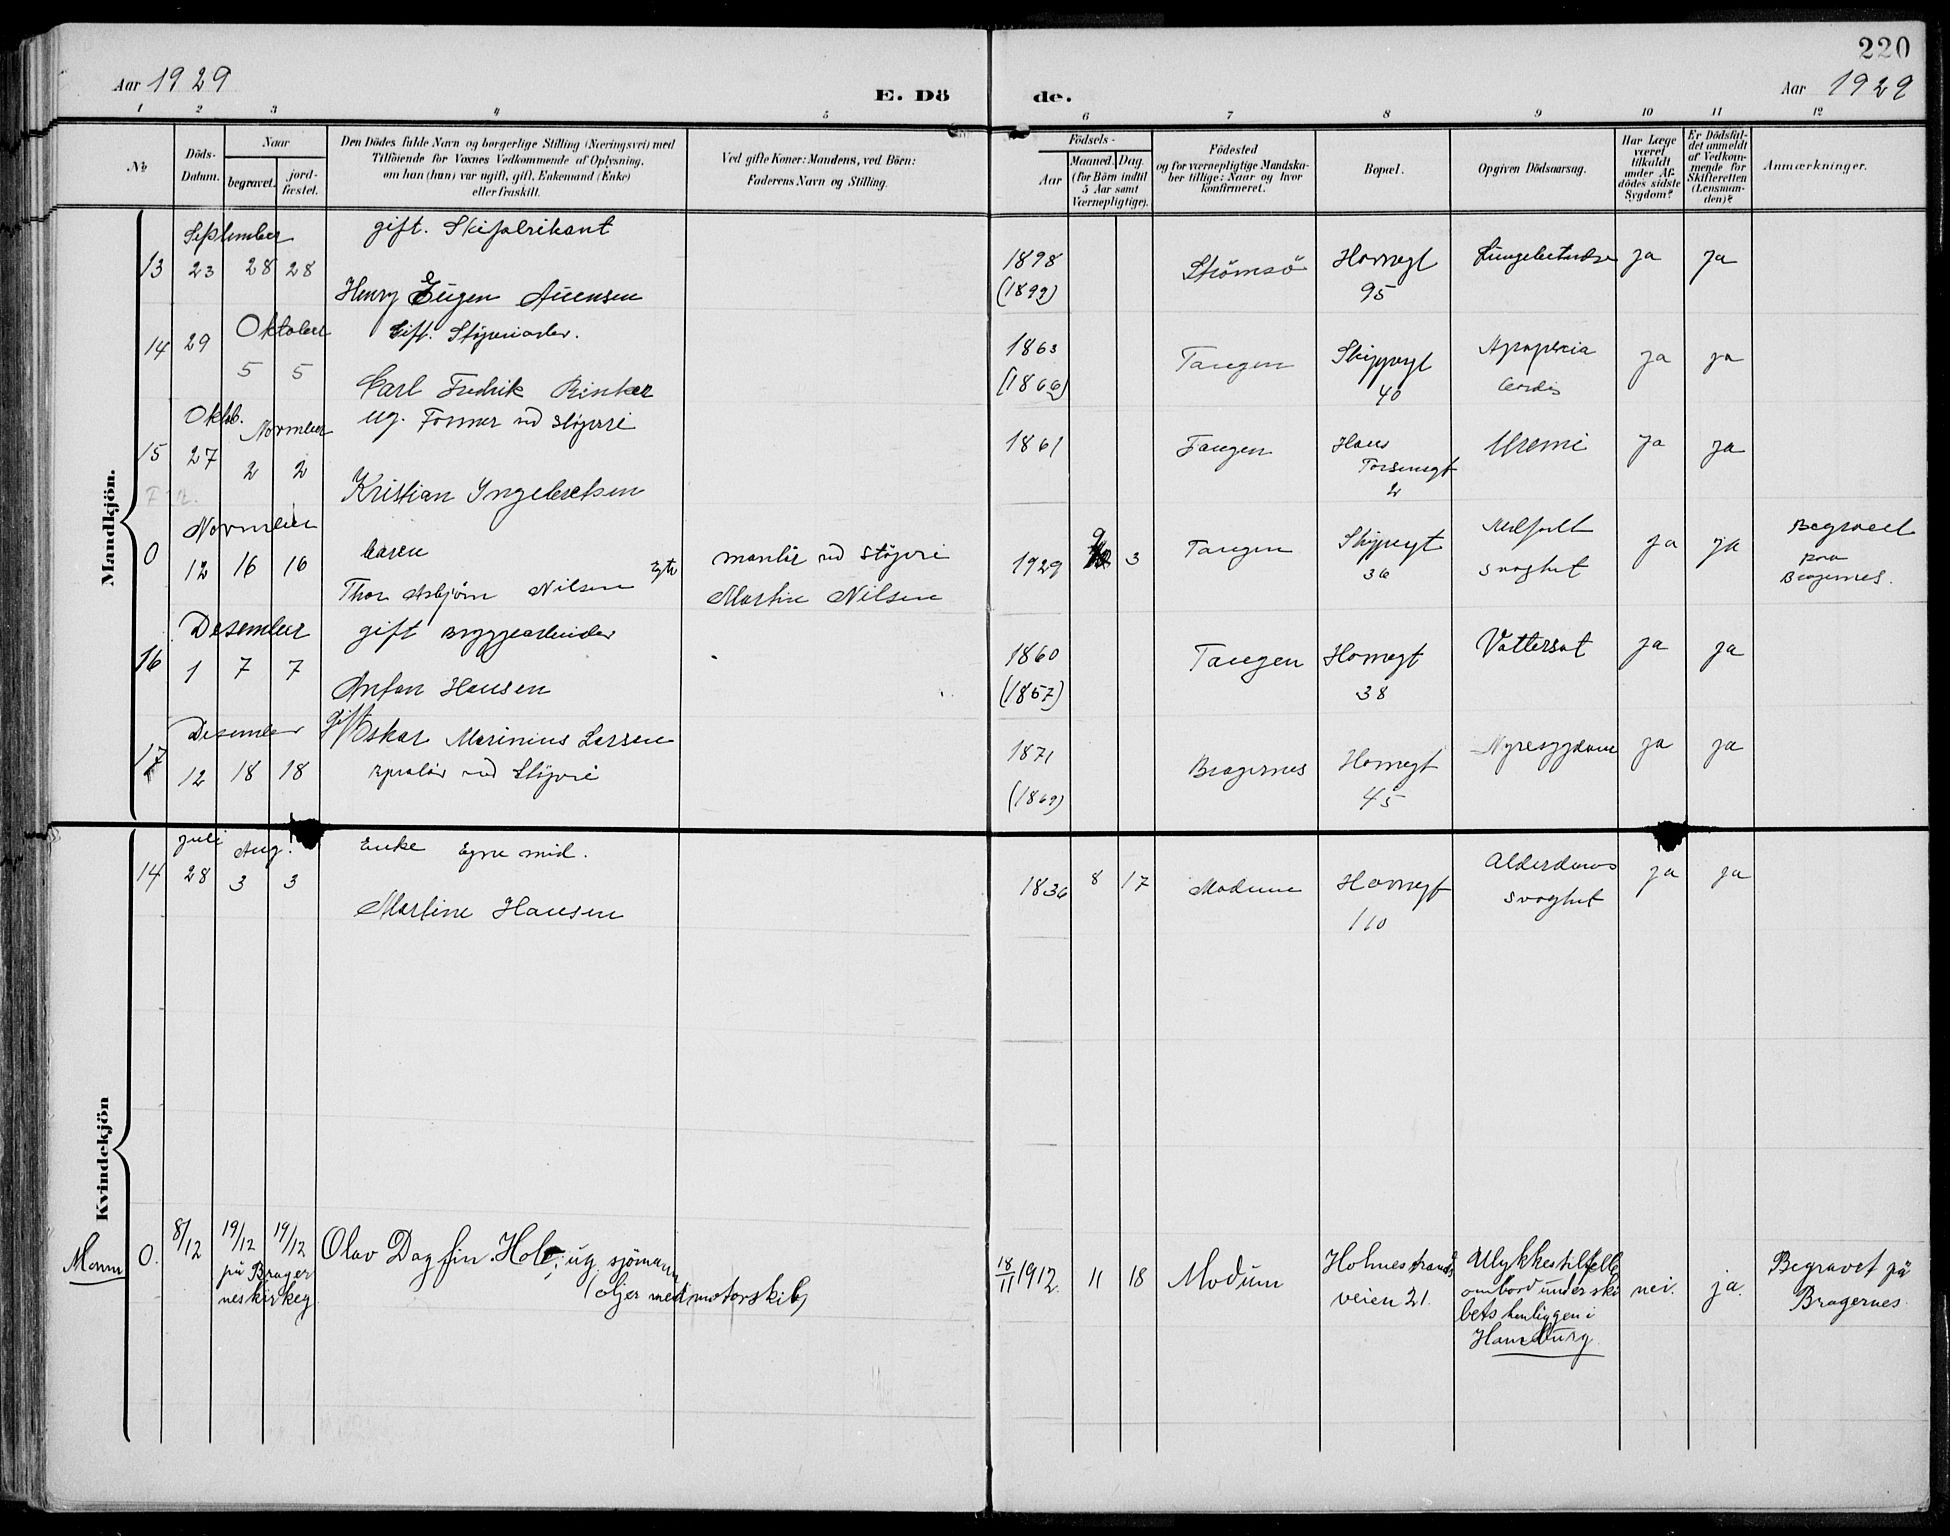 220
Aar 1929
E. Dö
de.
Aar 1929
1 2 3 4 5 6 7 8 9 10 11 12
No
Döds-
Datum.
Naar
begravet.
jord-
fæstet.
Den Dödes fulde Navn og borgerlige Stilling (Næringsvei) med
Tilföiende for Voxnes Vedkommende af Oplysning,
om han (hun) var ugift, gift, Enkemand (Enke)
eller fraskilt.
Ved gifte Koner: Mandens, ved Börn:
Faderens Navn og Stilling.
Födsels-
Aar
Maaned. Dag.
(for Börn indtil
5 Aar samt
Værnepligtige).
Födested
og for værnepligtige Mandska-
ber tillige: Naar og hvor
konfirmeret.
Bopæl.
Opgiven Dödsaarsag.
Har Læge
været
tilkaldt
under Af-
dödes sidste
Sygdom?
Er Dödsfal-
det anmeldt
af Vedkom-
mende for
Skifteretten
(Lensman-
den)?
Anmærkninger.
Mandkjön.
September
gift. Skifabrikant
13 23 28 28
Henry Eugen
1898
(1899)
Strömsö
Havnegt
95
Lungebetndse
ja
ja
14 29
Oktober
5 5
Gift. Stöperiarb.
Carl Fredrik
1863
(1866)
Tangen
Skippergt
40
Apoplexia
Cordis
ja
ja
15
Oktob.
27
November
2 2
ug. Former ved Stöperi
Kristian Ingebretsen
1861
Tangen
Hans
2
Uremi
ja
ja
0
November
12 16 16
Thor Asbjörn Nilsen
Egte
montör ved Stöperi
Martin Nilsen
1929 9 3
Tangen
Skippergt
36
Medfödt
svaghet
ja
ja
Begravet
paa
Bragernes.
16
Desember
1 7 7
gift Bryggearbeider
Anton Hansen
1860
(1857)
Tangen
Havnegt
38
Vattersot
ja
ja
17
Desember
12 18 18
gift
Oskar Marinius Larsen
ved Stöperi
1871
(1869)
Bragernes
Havnegt
45
Nyresygdom
ja
ja
Kvindekjön
14
Juli
28
Aug.
3 3
Enke Egne mid.
Martine Hansen
1836 8 17
Modum
Havnegt
110
Alderdoms
svaghet
ja
ja
Mann
0.
8/12
19/12
19/12
på Brager
neskirkeg
Olav Dagfin Hole, ug. sjömann
(oljer med motorskib)
18/11 1912. 11 18
Modum
Holmestrands
veien 21.
Ulykkestilfelle
ombord under ski
bets henliggen i
Hamburg
nei.
ja.
Begravet på
Bragernes